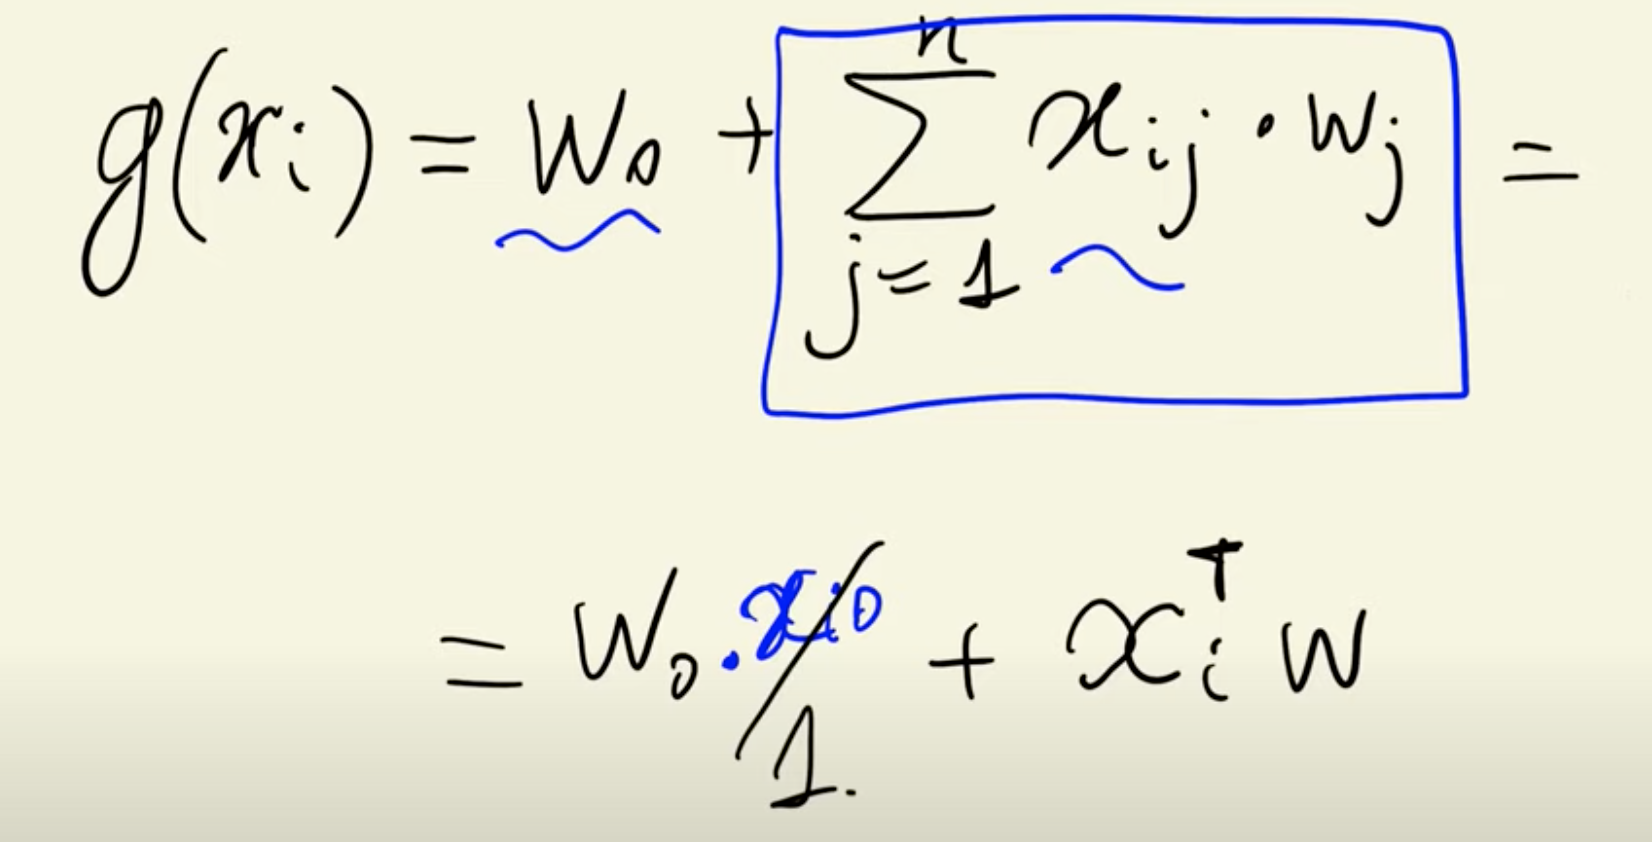 g(xᵢ) = w₀ + ∑ⁿⱼ₌₁ xᵢⱼ · wⱼ =
= w₀ · xᵢ₀ + xᵢᵀ w
1.